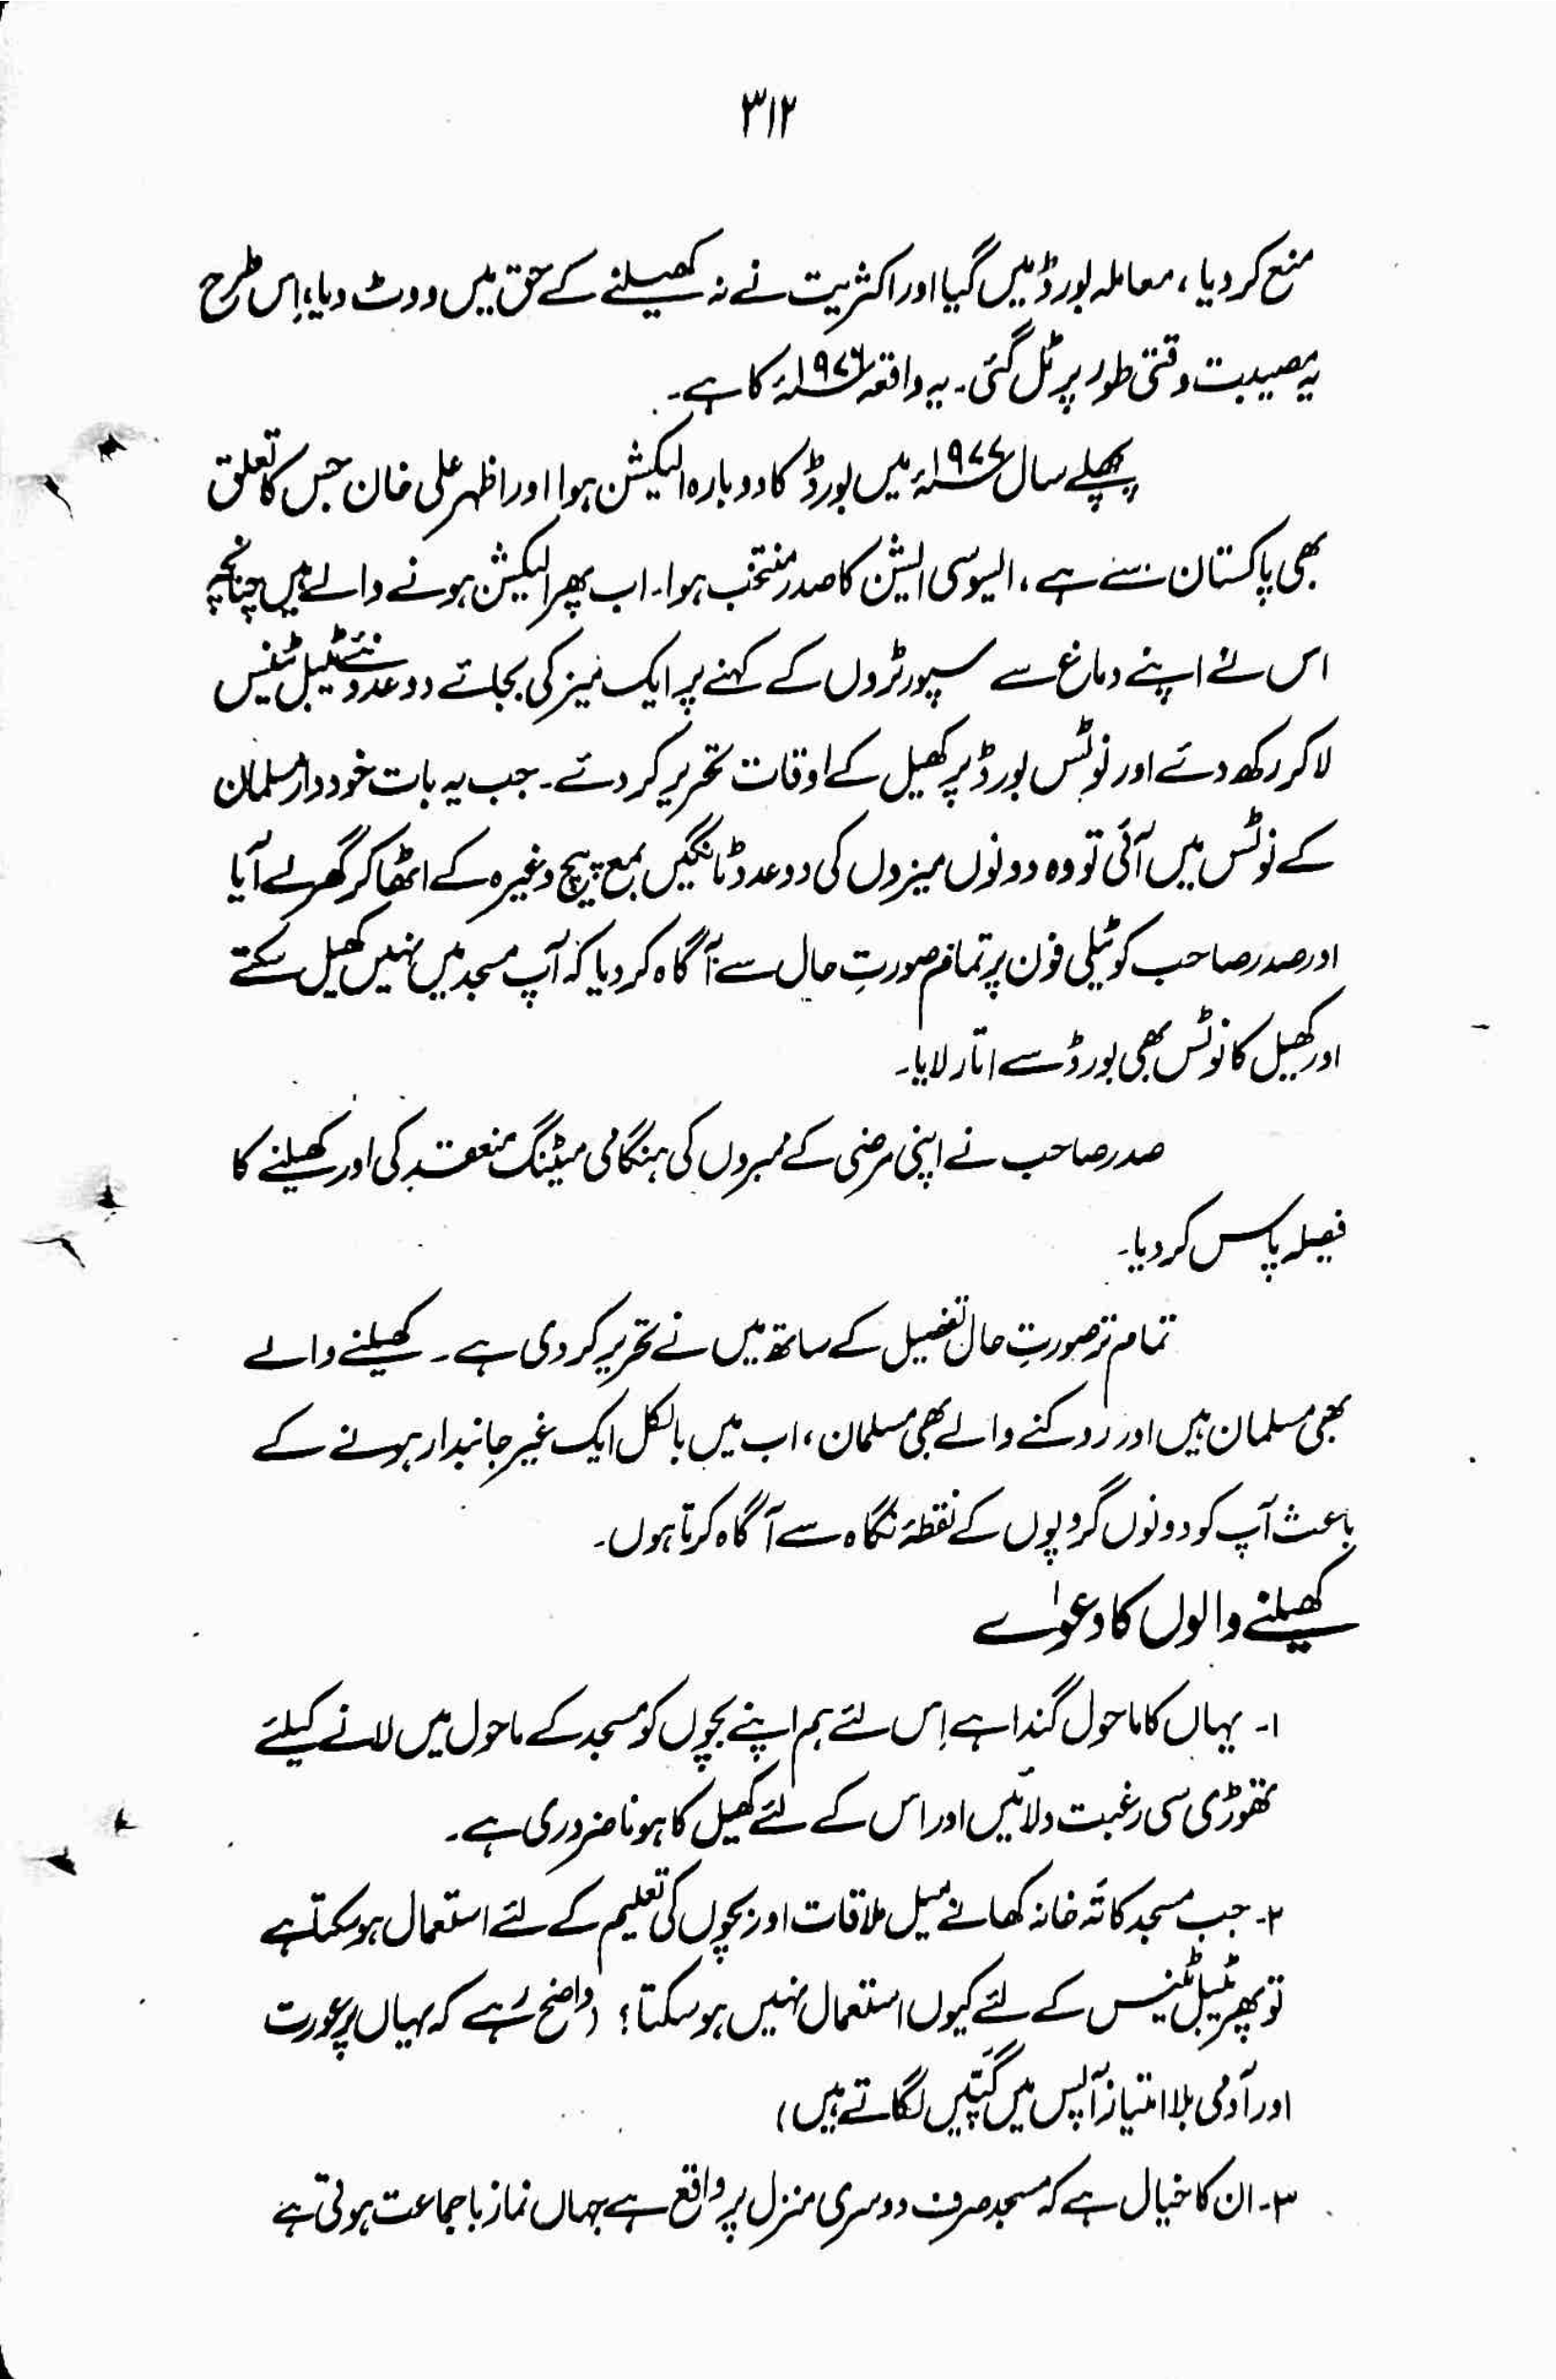 ۳۱۲
منع کر دیا، معاملہ بورڈ میں گیا اور اکثریت نے نہ کھیلنے کے حق میں ووٹ دیا، اِس طرح
یہ مصیبت وقتی طور پر ٹل گئی۔ یہ واقعہ ۱۹۷۶ء کا ہے۔
پچھلے سال ۱۹۷۷ء میں بورڈ کا دوبارہ الیکشن ہوا اور اظہر علی خان جس کا تعلق
بھی پاکستان سے ہے، ایسوسی ایشن کا صدر منتخب ہوا۔ اب پھر الیکشن ہونے والے ہیں چنانچہ
اس نے اپنے دماغ سے سپورٹروں کے کہنے پر ایک میز کی بجائے دو عدد نئے ٹیبل ٹینس
لا کر رکھ دئے اور نوٹس بورڈ پر کھیل کے اوقات تحریر کر دئے۔ جب یہ بات خوددار مسلمان
کے نوٹس میں آئی تو وہ دونوں میزوں کی دو عدد ٹانگیں بمع پیچ وغیرہ کے اٹھا کر گھر لے آیا
اور صدر صاحب کو ٹیلی فون پر تمام صورتِ حال سے آگاہ کر دیا کہ آپ مسجد میں نہیں کھیل سکتے
اور کھیل کا نوٹس بھی بورڈ سے اتار لایا۔
صدر صاحب نے اپنی مرضی کے ممبروں کی ہنگامی میٹنگ منعقد کی اور کھیلنے کا
فیصلہ پاس کر دیا۔
تمام تر صورتِ حال تفصیل کے ساتھ میں نے تحریر کر دی ہے۔ کھیلنے والے
بھی مسلمان ہیں اور روکنے والے بھی مسلمان، اب میں بالکل ایک غیر جانبدار ہونے کے
باعث آپ کو دونوں گروپوں کے نقطۂ نگاہ سے آگاہ کرتا ہوں۔
کھیلنے والوں کا دعوٰے
۱۔ یہاں کا ماحول گندا ہے اِس لئے ہم اپنے بچوں کو مسجد کے ماحول میں لانے کیلئے
تھوڑی سی رغبت دلائیں اور اس کے لئے کھیل کا ہونا ضروری ہے۔
۲۔ جب مسجد کا تہ خانہ کھانے میل ملاقات اور بچوں کی تعلیم کے لئے استعمال ہو سکتا ہے
تو پھر ٹیبل ٹینس کے لئے کیوں استعمال نہیں ہو سکتا؟ (واضح رہے کہ یہاں پر عورت
اور آدمی بلا امتیاز آپس میں گپیں لگاتے ہیں)
۳۔ ان کا خیال ہے کہ مسجد صرف دوسری منزل پر واقع ہے جہاں نماز باجماعت ہوتی ہے